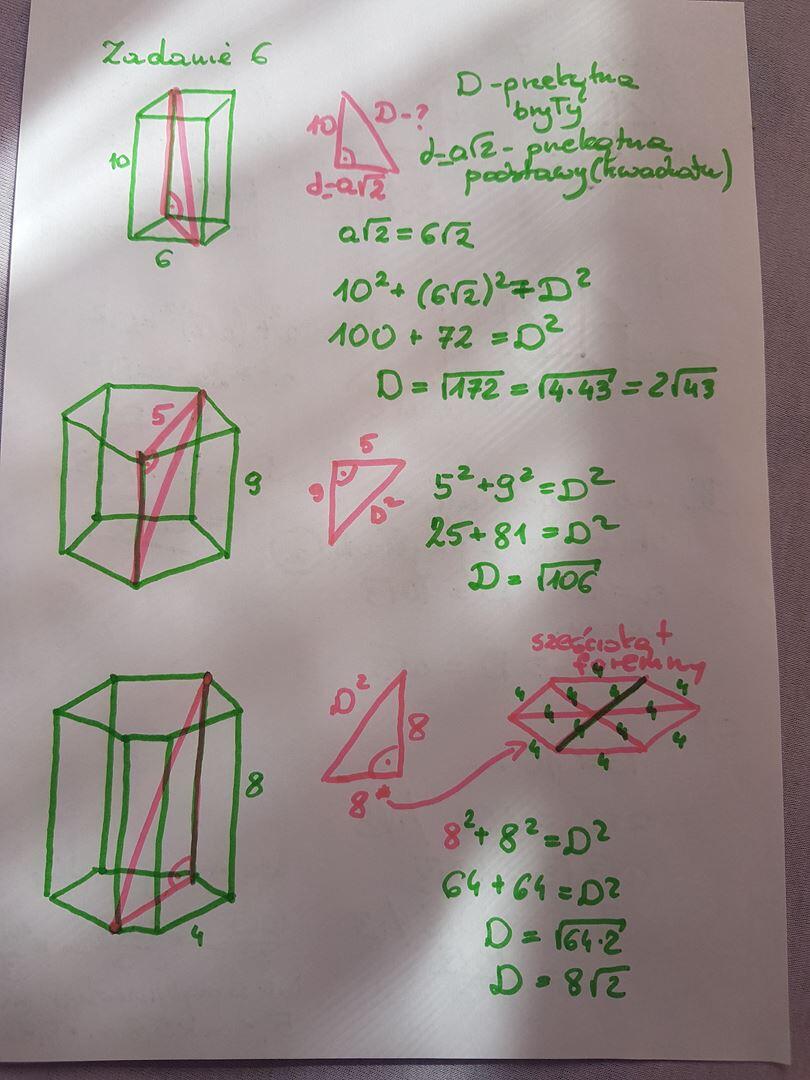 Zadanie 6
D - przekątna
bryły
10
D-?
d=a√2
d=a√2 - przekątna
podstawy (kwadratu)
10
6
a√2 = 6√2
10² + (6√2)² = D²
100 + 72 = D²
D = √172 = √4·43 = 2√43
5
9
5
9
D²
5² + 9² = D²
25 + 81 = D²
D = √106
sześciokąt
foremny
4
4
4
4
4
4
4
4
4
4
D²
8
8*
8
4
8² + 8² = D²
64 + 64 = D²
D = √64·2
D = 8√2